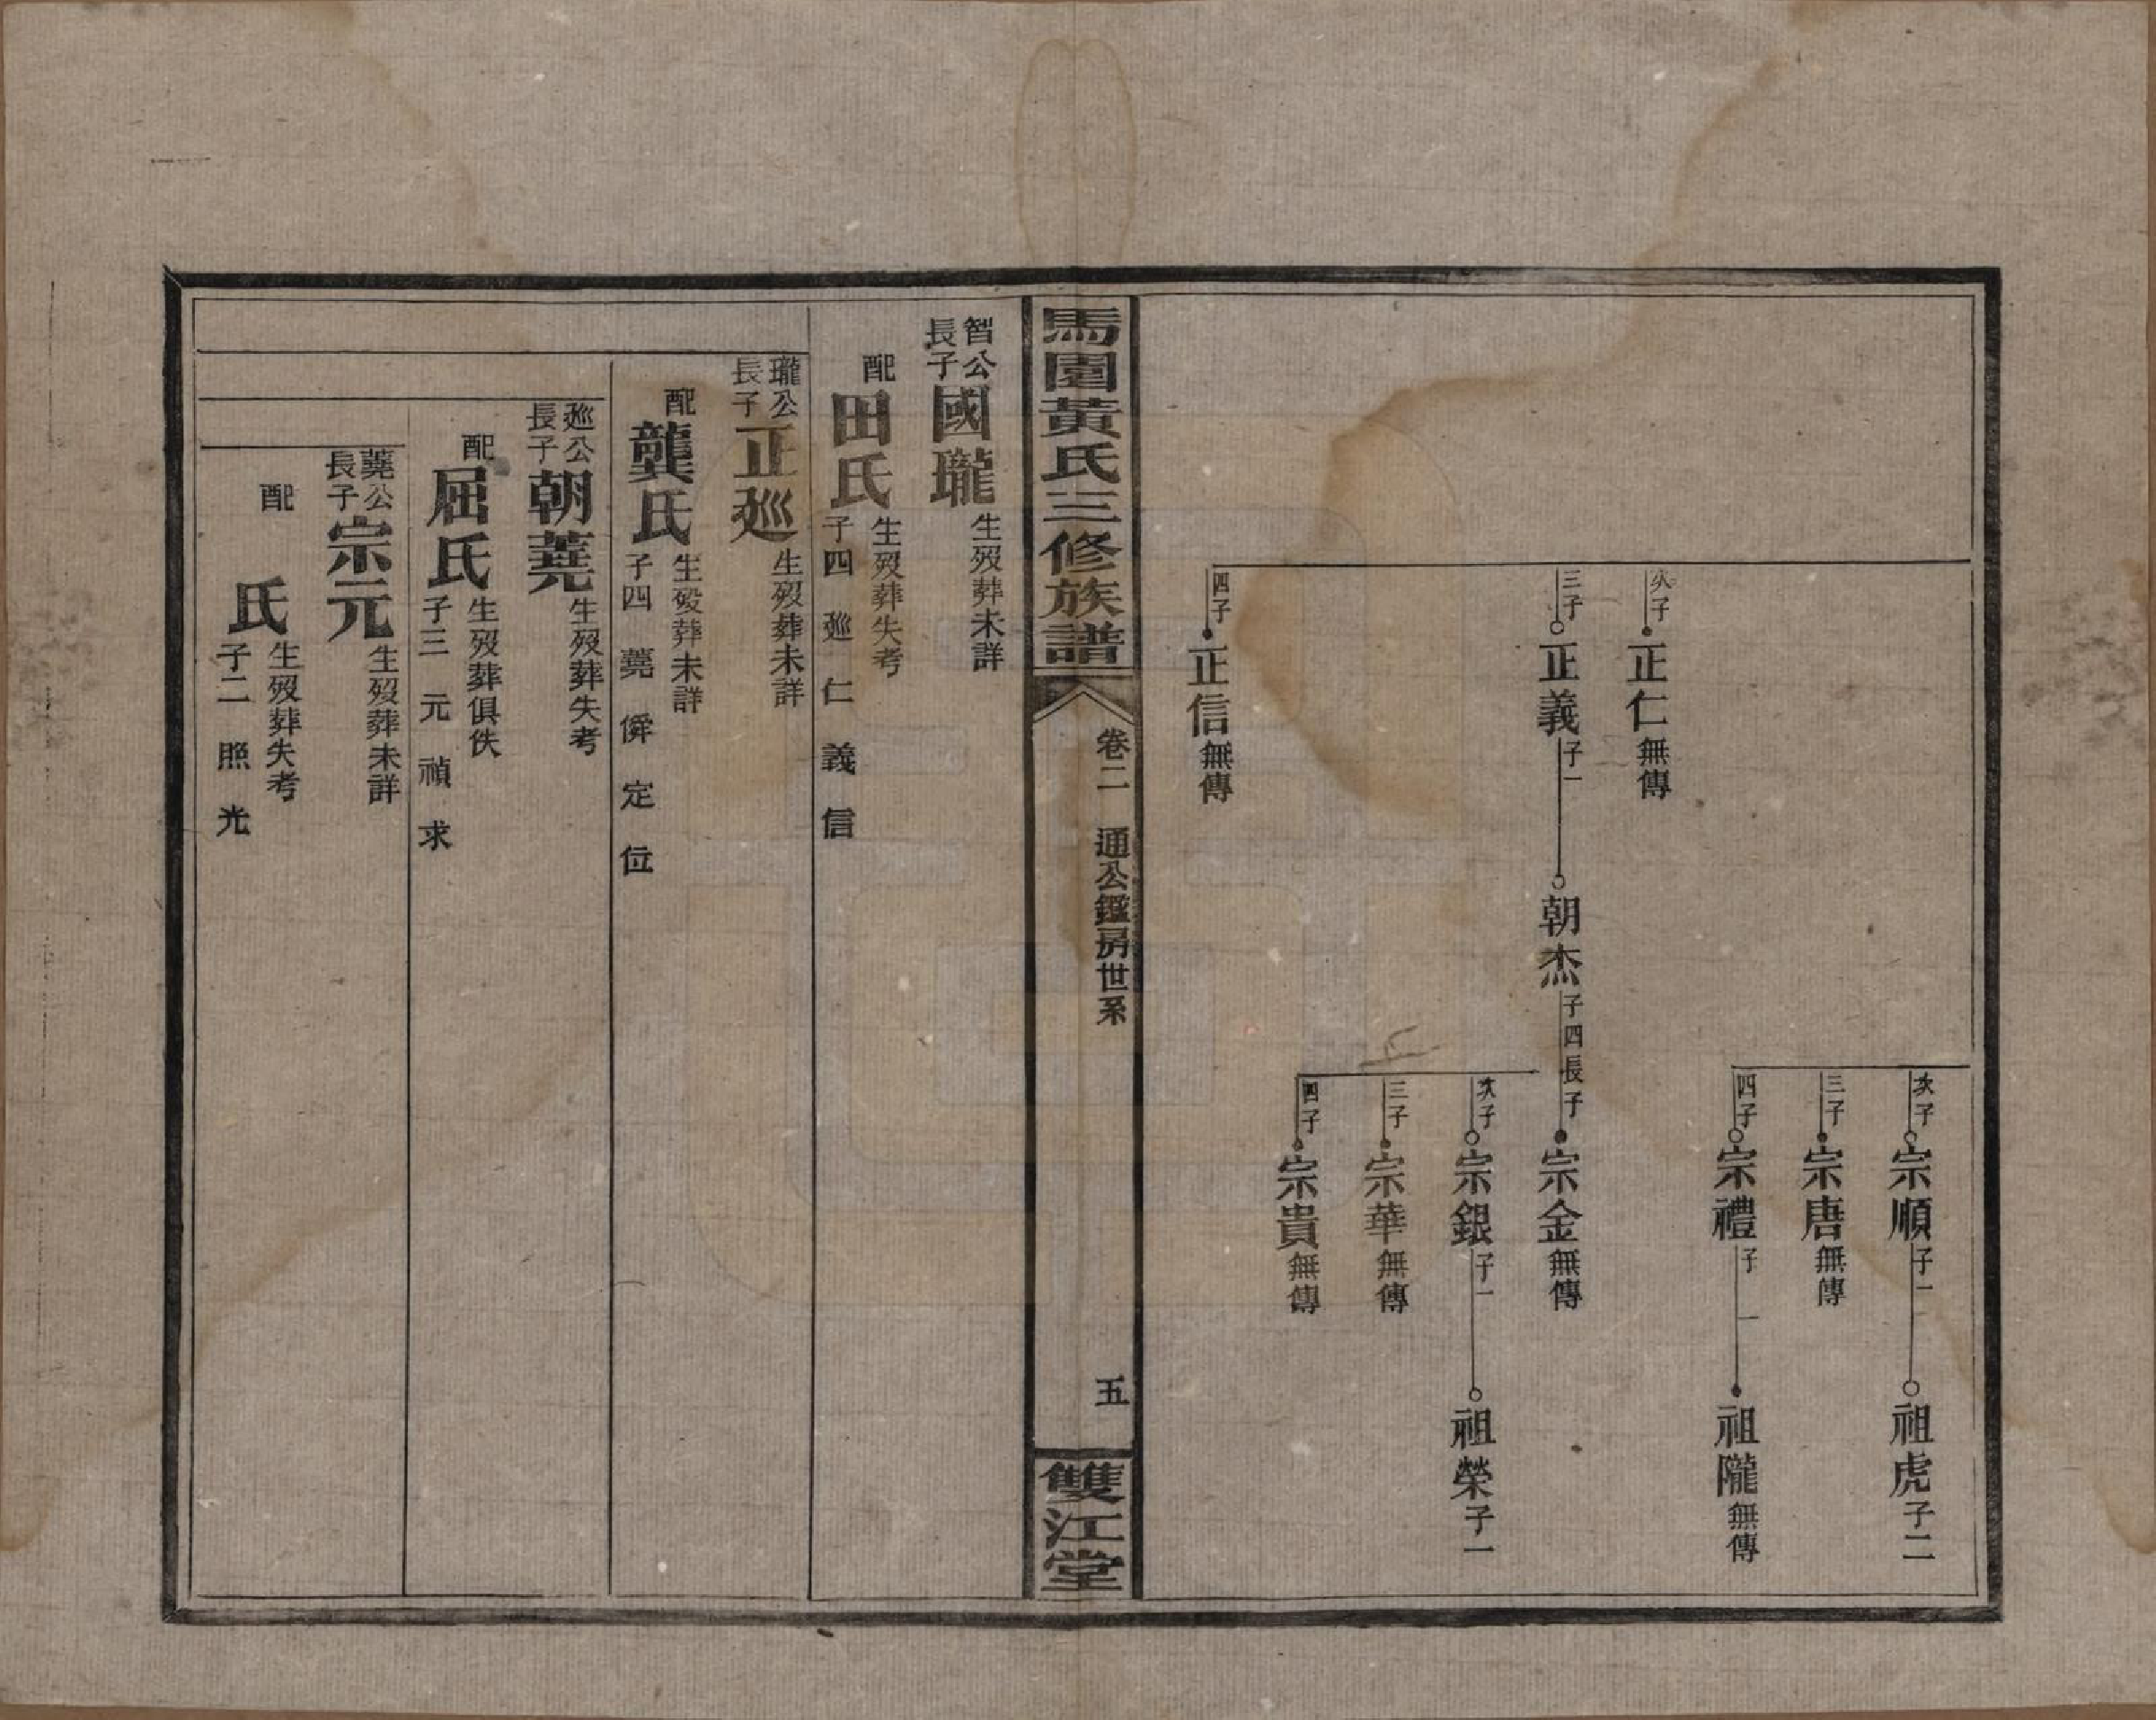 次子 宗順 子一 祖虎 子二
三子 宗唐 無傳
四子 宗禮 子一 祖隴 無傳
次子 正仁 無傳
三子 正義 子一 朝杰 子四長子 宗金 無傳
次子 宗銀 子一 祖榮 子一
三子 宗華 無傳
四子 宗貴 無傳
四子 正信 無傳
馬園黃氏三修族譜 卷二 通公鑑房世系 五 雙江堂
智公長子 國瓏 生歿葬未詳
配 田氏 生歿葬失考
子四 廵 仁 義 信
瓏公長子 正廵 生歿葬未詳
配 龔氏 生歿葬未詳
子四 蕘 僢 定 位
廵公長子 朝蕘 生歿葬失考
配 屈氏 生歿葬俱佚
子三 元 禎 求
蕘公長子 宗元 生歿葬未詳
配 氏 生歿葬失考
子二 照 光